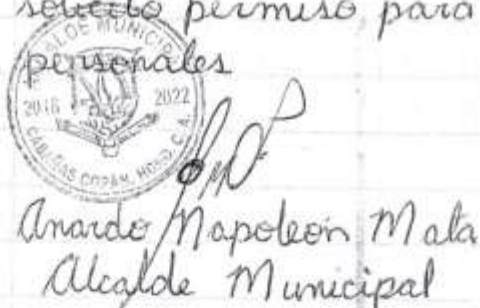 solicito permiso para
personales
ALCALDE MUNICIPAL
2018 2022
CABAÑAS COPÁN, HOND. C.A.
Anardo Napoleón Mata
Alcalde Municipal